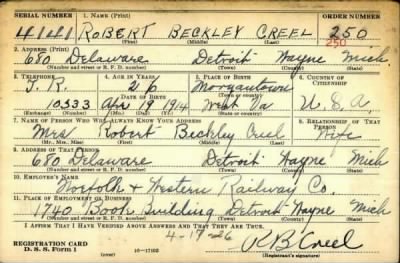 SERIAL NUMBER 1. NAME (Print) ORDER NUMBER
4141 ROBERT BECKLEY CREEL 250
(First) (Middle) (Last) 250
2. ADDRESS (Print)
680 Delaware Detroit Wayne Mich
(Number and street or R. F. D. number) (Town) (County) (State)
3. TELEPHONE 4. AGE IN YEARS 5. PLACE OF BIRTH 6. COUNTRY OF CITIZENSHIP
T. R. 26 Morgantown
DATE OF BIRTH (Town or county)
10533 Apr 19 1914 West Va U.S.A.
(Exchange) (Number) (Mo.) (Day) (Yr.) (State or country)
7. NAME OF PERSON WHO WILL ALWAYS KNOW YOUR ADDRESS 8. RELATIONSHIP OF THAT PERSON
Mrs Robert Beckley Creel Wife
(Mr., Mrs., Miss) (First) (Middle) (Last)
9. ADDRESS OF THAT PERSON
680 Delaware Detroit Wayne Mich
(Number and street or R. F. D. number) (Town) (County) (State)
10. EMPLOYER'S NAME
Norfolk & Western Railway Co.
11. PLACE OF EMPLOYMENT OR BUSINESS
1740 Book Building Detroit Wayne Mich
(Number and street or R. F. D. number) (Town) (County) (State)
I AFFIRM THAT I HAVE VERIFIED ABOVE ANSWERS AND THAT THEY ARE TRUE.
REGISTRATION CARD 4-19-26 R B Creel
D. S. S. Form 1 16-17105 (Registrant's signature)